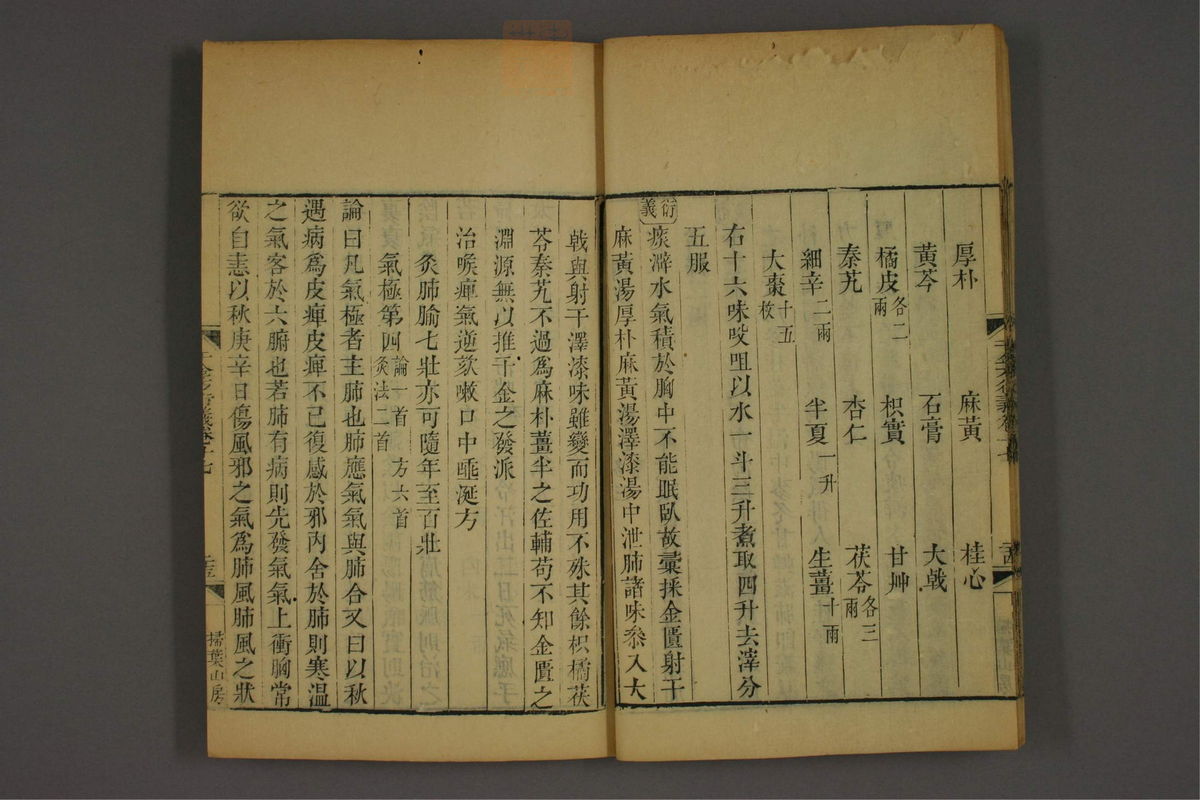 厚朴 麻黃 桂心
黃芩 石膏 大戟
橘皮各二兩 枳實 甘艸
秦艽 杏仁 茯苓各三兩
細辛二兩 半夏一升 生薑十兩
大棗十五枚
右十六味㕮咀以水一斗三升煮取四升去滓分
五服
衍義
痰澼水氣積於胸中不能眠臥故彙採金匱射干
麻黃湯厚朴麻黃湯澤漆湯中泄肺諸味叅入大
戟與射干澤漆味雖變而功用不殊其餘枳橘茯
苓秦艽不過爲麻朴薑半之佐輔苟不知金匱之
淵源無以推千金之發派
治喉痺氣逆欬嗽口中唾涎方
灸肺腧七壯亦可隨年至百壯
氣極第四論一首 方六首 灸法二首
論曰凡氣極者主肺也肺應氣氣與肺合又曰以秋
遇病爲皮痺皮痺不已復感於邪內舍於肺則寒濕
之氣客於六腑也若肺有病則先發氣氣上衝胸常
欲自恚以秋庚辛日傷風邪之氣爲肺風肺風之狀
掃葉山房